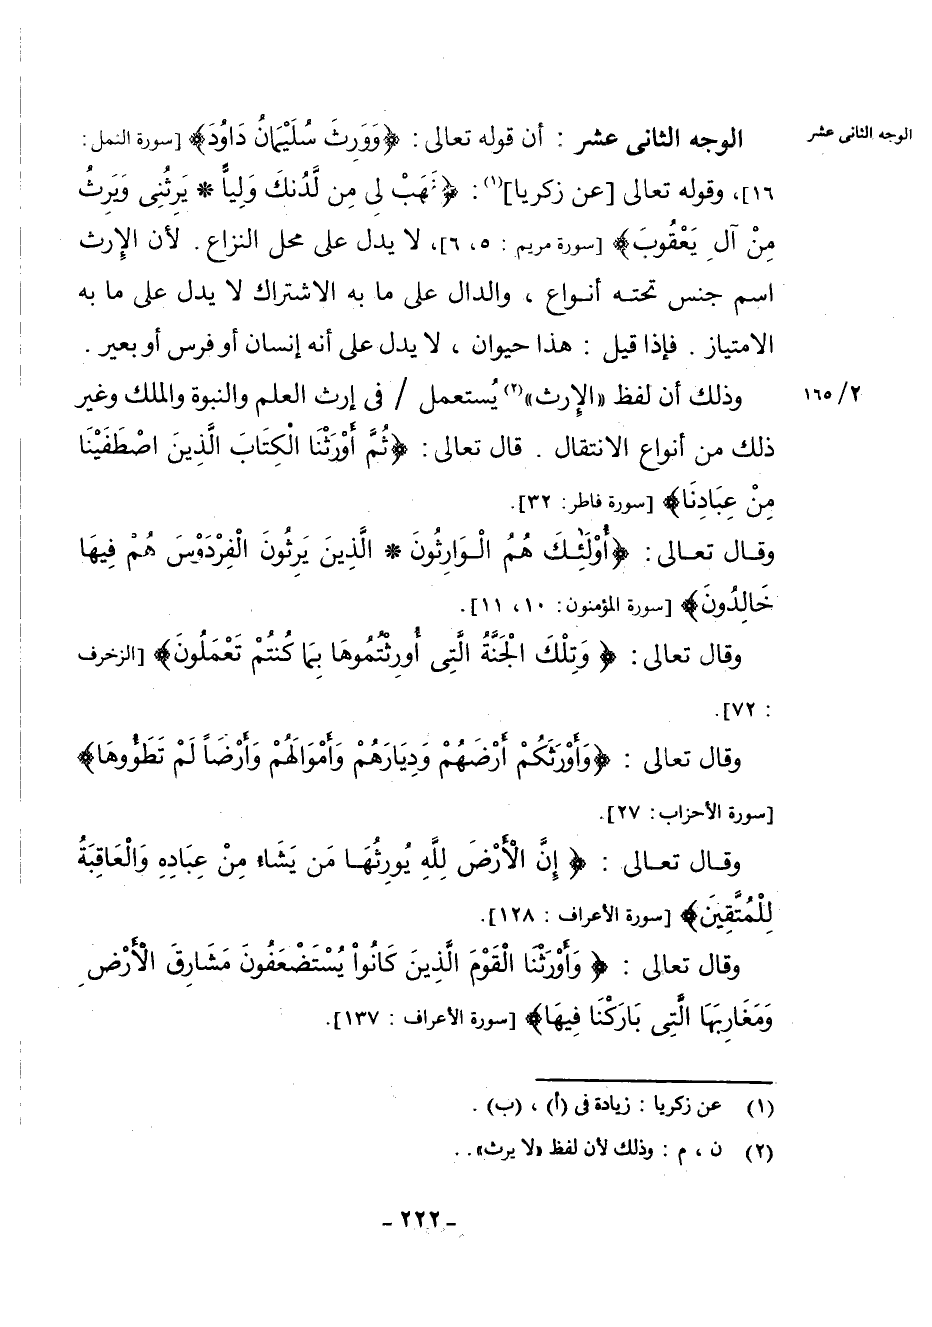 الوجه الثانى عشر
الوجه الثانى عشر : أن قوله تعالى : ﴿وَوَرِثَ سُلَيْمَانُ دَاوُدَ﴾ [سورة النمل :
١٦]، وقوله تعالى [عن زكريا]⁽١⁾ : ﴿فَهَبْ لِى مِن لَّدُنكَ وَلِياًّ * يَرِثُنِى وَيَرِثُ
مِنْ آلِ يَعْقُوبَ﴾ [سورة مريم : ٥، ٦]، لا يدل على محل النزاع . لأن الإرث
اسم جنس تحته أنواع ، والدال على ما به الاشتراك لا يدل على ما به
الامتياز . فإذا قيل : هذا حيوان ، لا يدل على أنه إنسان أو فرس أو بعير .
٢/ ١٦٥
وذلك أن لفظ «الإرث»⁽٢⁾ يُستعمل / فى إرث العلم والنبوة والملك وغير
ذلك من أنواع الانتقال . قال تعالى : ﴿ثُمَّ أَوْرَثْنَا الْكِتَابَ الَّذِينَ اصْطَفَيْنَا
مِنْ عِبَادِنَا﴾ [سورة فاطر: ٣٢].
وقال تعالى : ﴿أُوْلَٰئِكَ هُمُ الْوَارِثُونَ * الَّذِينَ يَرِثُونَ الْفِرْدَوْسَ هُمْ فِيهَا
خَالِدُونَ﴾ [سورة المؤمنون: ١٠، ١١].
وقال تعالى : ﴿ وَتِلْكَ الْجَنَّةُ الَّتِى أُورِثْتُمُوهَا بِمَا كُنتُمْ تَعْمَلُونَ﴾ [الزخرف
: ٧٢].
وقال تعالى : ﴿وَأَوْرَثَكُمْ أَرْضَهُمْ وَدِيَارَهُمْ وَأَمْوَالَهُمْ وَأَرْضَاً لَمْ تَطَؤُوهَا﴾
[سورة الأحزاب : ٢٧].
وقال تعالى : ﴿ إِنَّ الْأَرْضَ لِلَّهِ يُورِثُهَا مَن يَشَاءُ مِنْ عِبَادِهِ وَالْعَاقِبَةُ
لِلْمُتَّقِينَ﴾ [سورة الأعراف : ١٢٨].
وقال تعالى : ﴿ وَأَوْرَثْنَا الْقَوْمَ الَّذِينَ كَانُواْ يُسْتَضْعَفُونَ مَشَارِقَ الْأَرْضِ
وَمَغَارِبَهَا الَّتِى بَارَكْنَا فِيهَا﴾ [سورة الأعراف : ١٣٧].
(١) عن زكريا : زيادة فى (أ) ، (ب) .
(٢) ن ، م : وذلك لأن لفظ «لا يرث» . .
- ٢٢٢ -